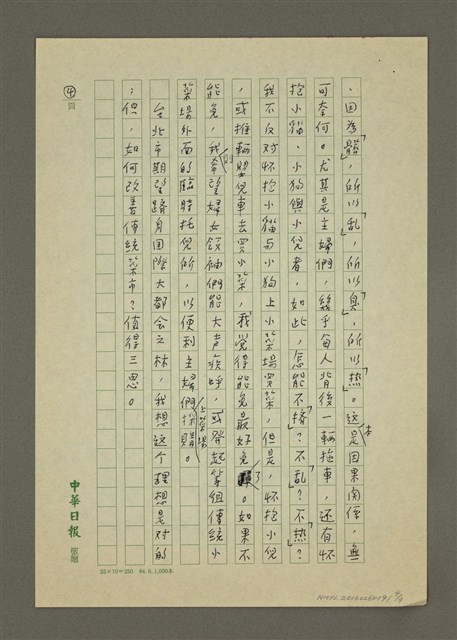 、因為「髒」,所以「乱」,所以「臭」,所以「熱」。这本是因果関係,無
可奈何。尤其是主婦們,幾乎每人背後一輛拖車,还有怀
抱小貓、小狗與小兒者,如此,怎能不「擠」?不「亂」?不「熱」?
我不反对怀抱小貓与小狗上小菜場買菜,但是,怀抱小兒
,或推輛嬰兒車去買小菜,我覚得能免最好免了。如果不
能免,我則希望婦女領袖們能大声疾呼,或發起籌組傳統小
菜場外面的臨時托兒所,以便利主婦們上菜場採購。
台北市期望躋身国際大都会之林,我想这个理想是对的
;但,如何改善傳統菜市?值得三思。
④
頁
中華日報 張姻
25×10=250 84.6.1,000本